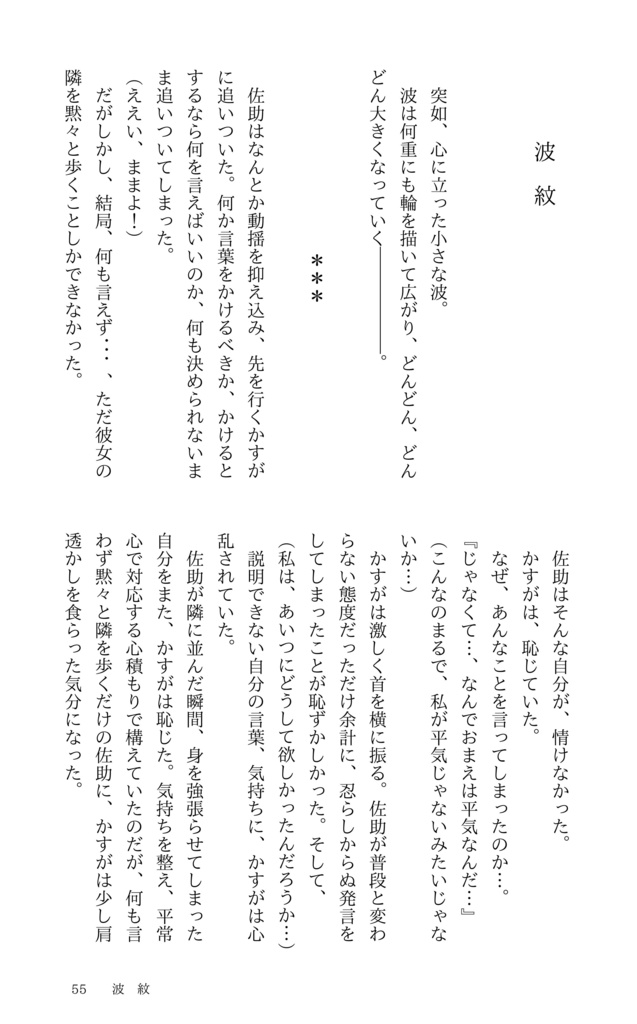 波紋
突如、心に立った小さな波。
波は何重にも輪を描いて広がり、どんどん、どん
どん大きくなっていく――――――。
＊＊＊
佐助はなんとか動揺を抑え込み、先を行くかすが
に追いついた。何か言葉をかけるべきか、かけると
するなら何を言えばいいのか、何も決められないま
ま追いついてしまった。
（ええい、ままよ！）
だがしかし、結局、何も言えず…、ただ彼女の
隣を黙々と歩くことしかできなかった。
佐助はそんな自分が、情けなかった。
かすがは、恥じていた。
なぜ、あんなことを言ってしまったのか…。
『じゃなくて…、なんでおまえは平気なんだ…』
（こんなのまるで、私が平気じゃないみたいじゃな
いか…）
かすがは激しく首を横に振る。佐助が普段と変わ
らない態度だっただけ余計に、忍らしからぬ発言を
してしまったことが恥ずかしかった。そして、
（私は、あいつにどうして欲しかったんだろうか…）
説明できない自分の言葉、気持ちに、かすがは心
乱されていた。
佐助が隣に並んだ瞬間、身を強張らせてしまった
自分をまた、かすがは恥じた。気持ちを整え、平常
心で対応する心積もりで構えていたのだが、何も言
わず黙々と隣を歩くだけの佐助に、かすがは少し肩
透かしを食らった気分になった。
55 波紋